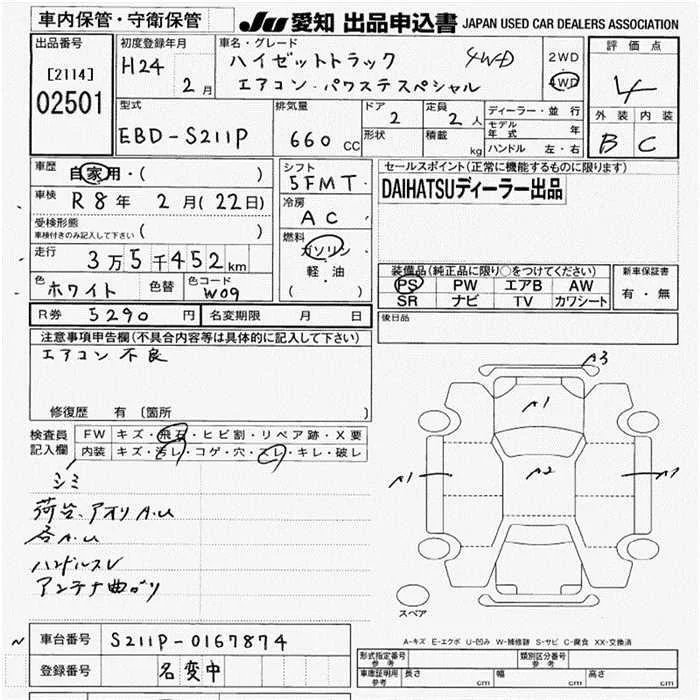 車内保管・守衛保管
JU 愛知 出品申込書 JAPAN USED CAR DEALERS ASSOCIATION
出品番号
[2114]
02501
初度登録年月
H24 2月
車名・グレード
ハイゼットトラック 4WD
エアコン・パワステスペシャル
2WD
4WD
評価点
4
外装 内装
B C
型式
EBD-S211P
排気量
660 cc
ドア
2
定員
2人
形状
積載
kg
ディーラー・並行
モデル年式 年
ハンドル 左・右
車歴 自家用・( )
車検 R8年 2月(22日)
受検形態
車検付きのみ記入して下さい ( )
走行 3万5千452km
色 ホワイト 色替 色コード W09
シフト
5FMT
冷房
AC
燃料
ガソリン
軽・油
( )
セールスポイント(正常に機能するものに限ります)
DAIHATSUディーラー出品
装備品(純正品に限り○をつけてください)
PS PW エアB AW
SR ナビ TV カワシート
新車保証書
有・無
R券 5290円 名変期限 月 日
後日品
注意事項申告欄(不具合内容等は具体的に記入して下さい)
エアコン不良
修復歴 有 [箇所 ]
検査員
記入欄
FW キズ・飛石・ヒビ割・リペア跡・X要
内装 キズ・汚レ・コゲ・穴・スレ・キレ・破レ
シミ
荷台、アオリA.U
各A.U
ハンドルスレ
アンテナ曲ガリ
A3
A1
A1 A2 A1
スペア
A-キズ E-エクボ U-凹み W-補修跡 S-サビ C-腐食 XX-交換済
車台番号 S211P-0167874
登録番号 名変中
形式指定番号
参考
類別区分番号
参考
車庫証明用
参考
長さ cm 幅 cm 高さ cm